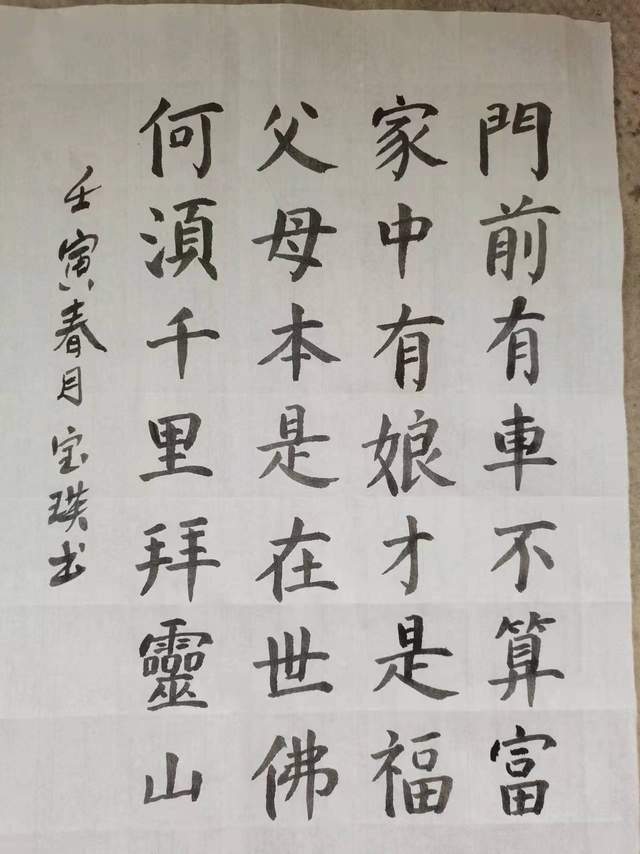 門前有車不算富
家中有娘才是福
父母本是在世佛
何須千里拜靈山
壬寅春月宝瑛书